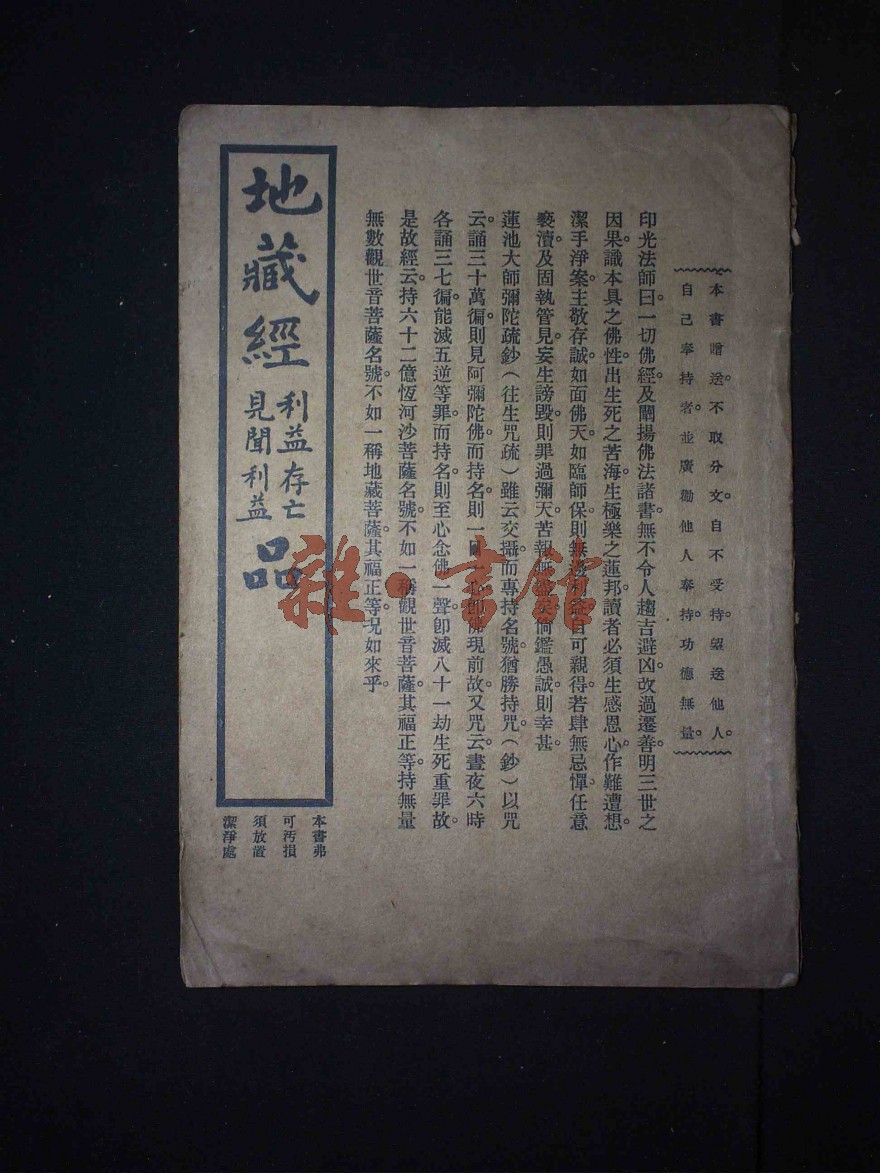 本書贈送。不取分文。自不受持。望送他人。
自己奉持者。並廣勸他人奉持。功德無量。
印光法師曰。一切佛經。及闡揚佛法諸書。無不令人趨吉避凶。改過遷善。明三世之
因果。識本具之佛性。出生死之苦海。生極樂之蓮邦。讀者必須生感恩心。作難遭想。
潔手淨案。主敬存誠。如面佛天。如臨師保。則無邊利益。自可親得。若肆無忌憚。任意
褻瀆。及固執管見。妄生謗毀。則罪過彌天。苦報無盡矣。倘鑑愚誠。則幸甚。
蓮池大師彌陀疏鈔(往生咒疏)雖云交攝。而專持名號。猶勝持咒。(鈔)以咒
云。誦三十萬徧。則見阿彌陀佛。而持名。則一日一心。即佛現前故。又咒云。晝夜六時
各誦三七徧。能滅五逆等罪。而持名。則至心念佛一聲。即滅八十一劫生死重罪故。
是故經云。持六十二億恆河沙菩薩名號。不如一稱觀世音菩薩。其福正等。持無量
無數觀世音菩薩名號。不如一稱地藏菩薩。其福正等。況如來乎。
地藏經
利益存亡
見聞利益
品
本書弗
可汚損
須放置
潔淨處
雜·書館